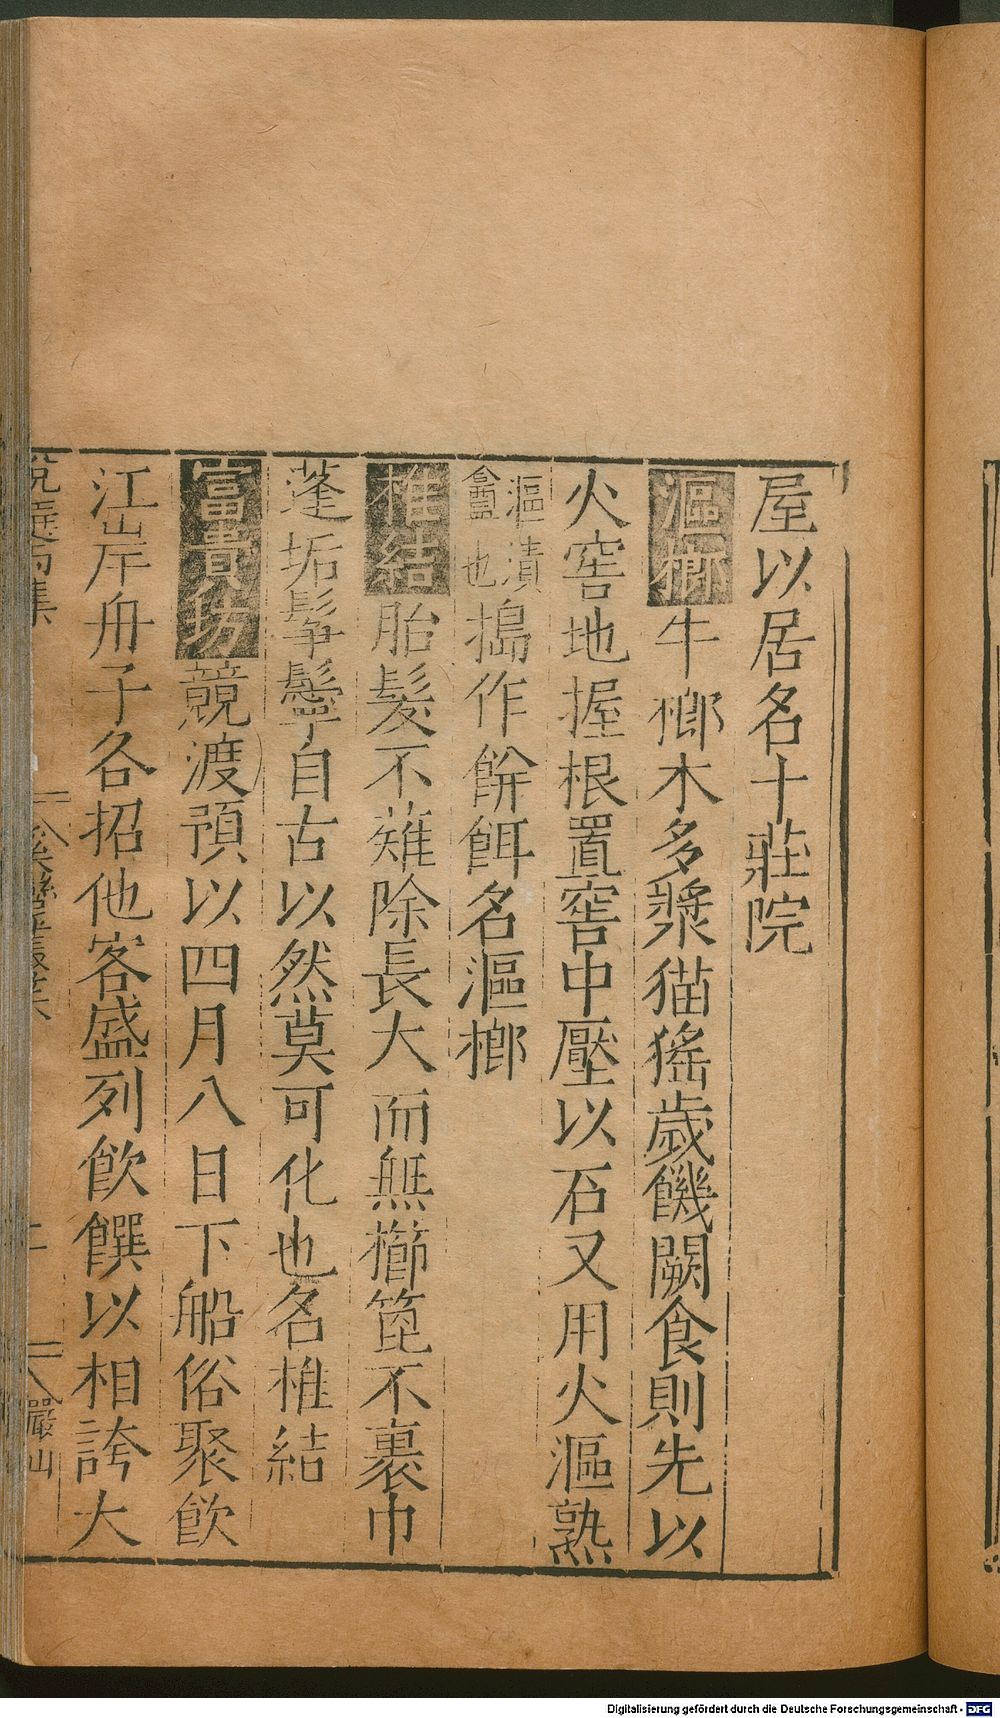 屋以居名十莊院
漚榔牛榔木多漿猫猺歲饑闕食則先以
火窖地掘根置窖中壓以石又用火漚熟
漚漬
盦也搗作餅餌名漚榔
椎結胎髮不薙除長大而無櫛篦不裹巾
蓬垢髼鬡自古以然莫可化也名椎結
富貴坊競渡預以四月八日下船俗聚飲
江岸舟子各招他客盛列飲饌以相誇大
溪蠻叢笑
嚴山
Digitalisierung gefördert durch die Deutsche Forschungsgemeinschaft - DFG